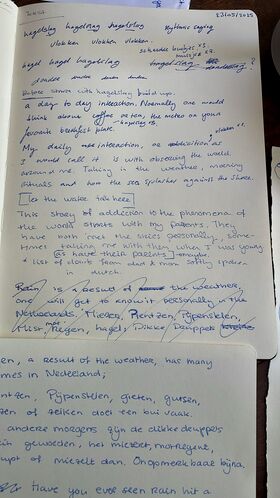 23/05/2025
hagelslag hagelslag hagelslag
Rythmic saying
vlokken vlokken vlokken.
hagel hagel hagelslag
?
donder
Before starts with hagelslag build up.
a day to day interaction. Normally one would
think about coffee or ten, the meteo on your
favourite breakfast plate.
hagelslag
vlokken
My daily interaction, or addiction as
I would call it is with observing the world
around me. Taking in the weather, morning
rituals and how the sea splashes against the shore.
let the water talk here
This story of addiction to the phenomena of
the world starts with my parents. They
have both read the skies personally, some-
times taking me with them when I was young
as have their parents maybe
* list of clouds from dad & mom softly spoken
in dutch.
Rain is a result of the weather,
one will get to know it personally in the
Netherlands. Miezer, Plentzen, Pijpenstelen,
Mist, Regen, hagel, Dikke Druppels
en, a result of the weather, has many
mes in Nederland;
ntzen, Pijpenstelen, gieten, gutsen,
zen of zeiken doet een bui vaak.
andere morgens zijn de dikke druppels
in geworden, het miezert, motregent,
upt of miezelt dan. Onopmerkbaar bijna.
Have you ever seen rain hit a